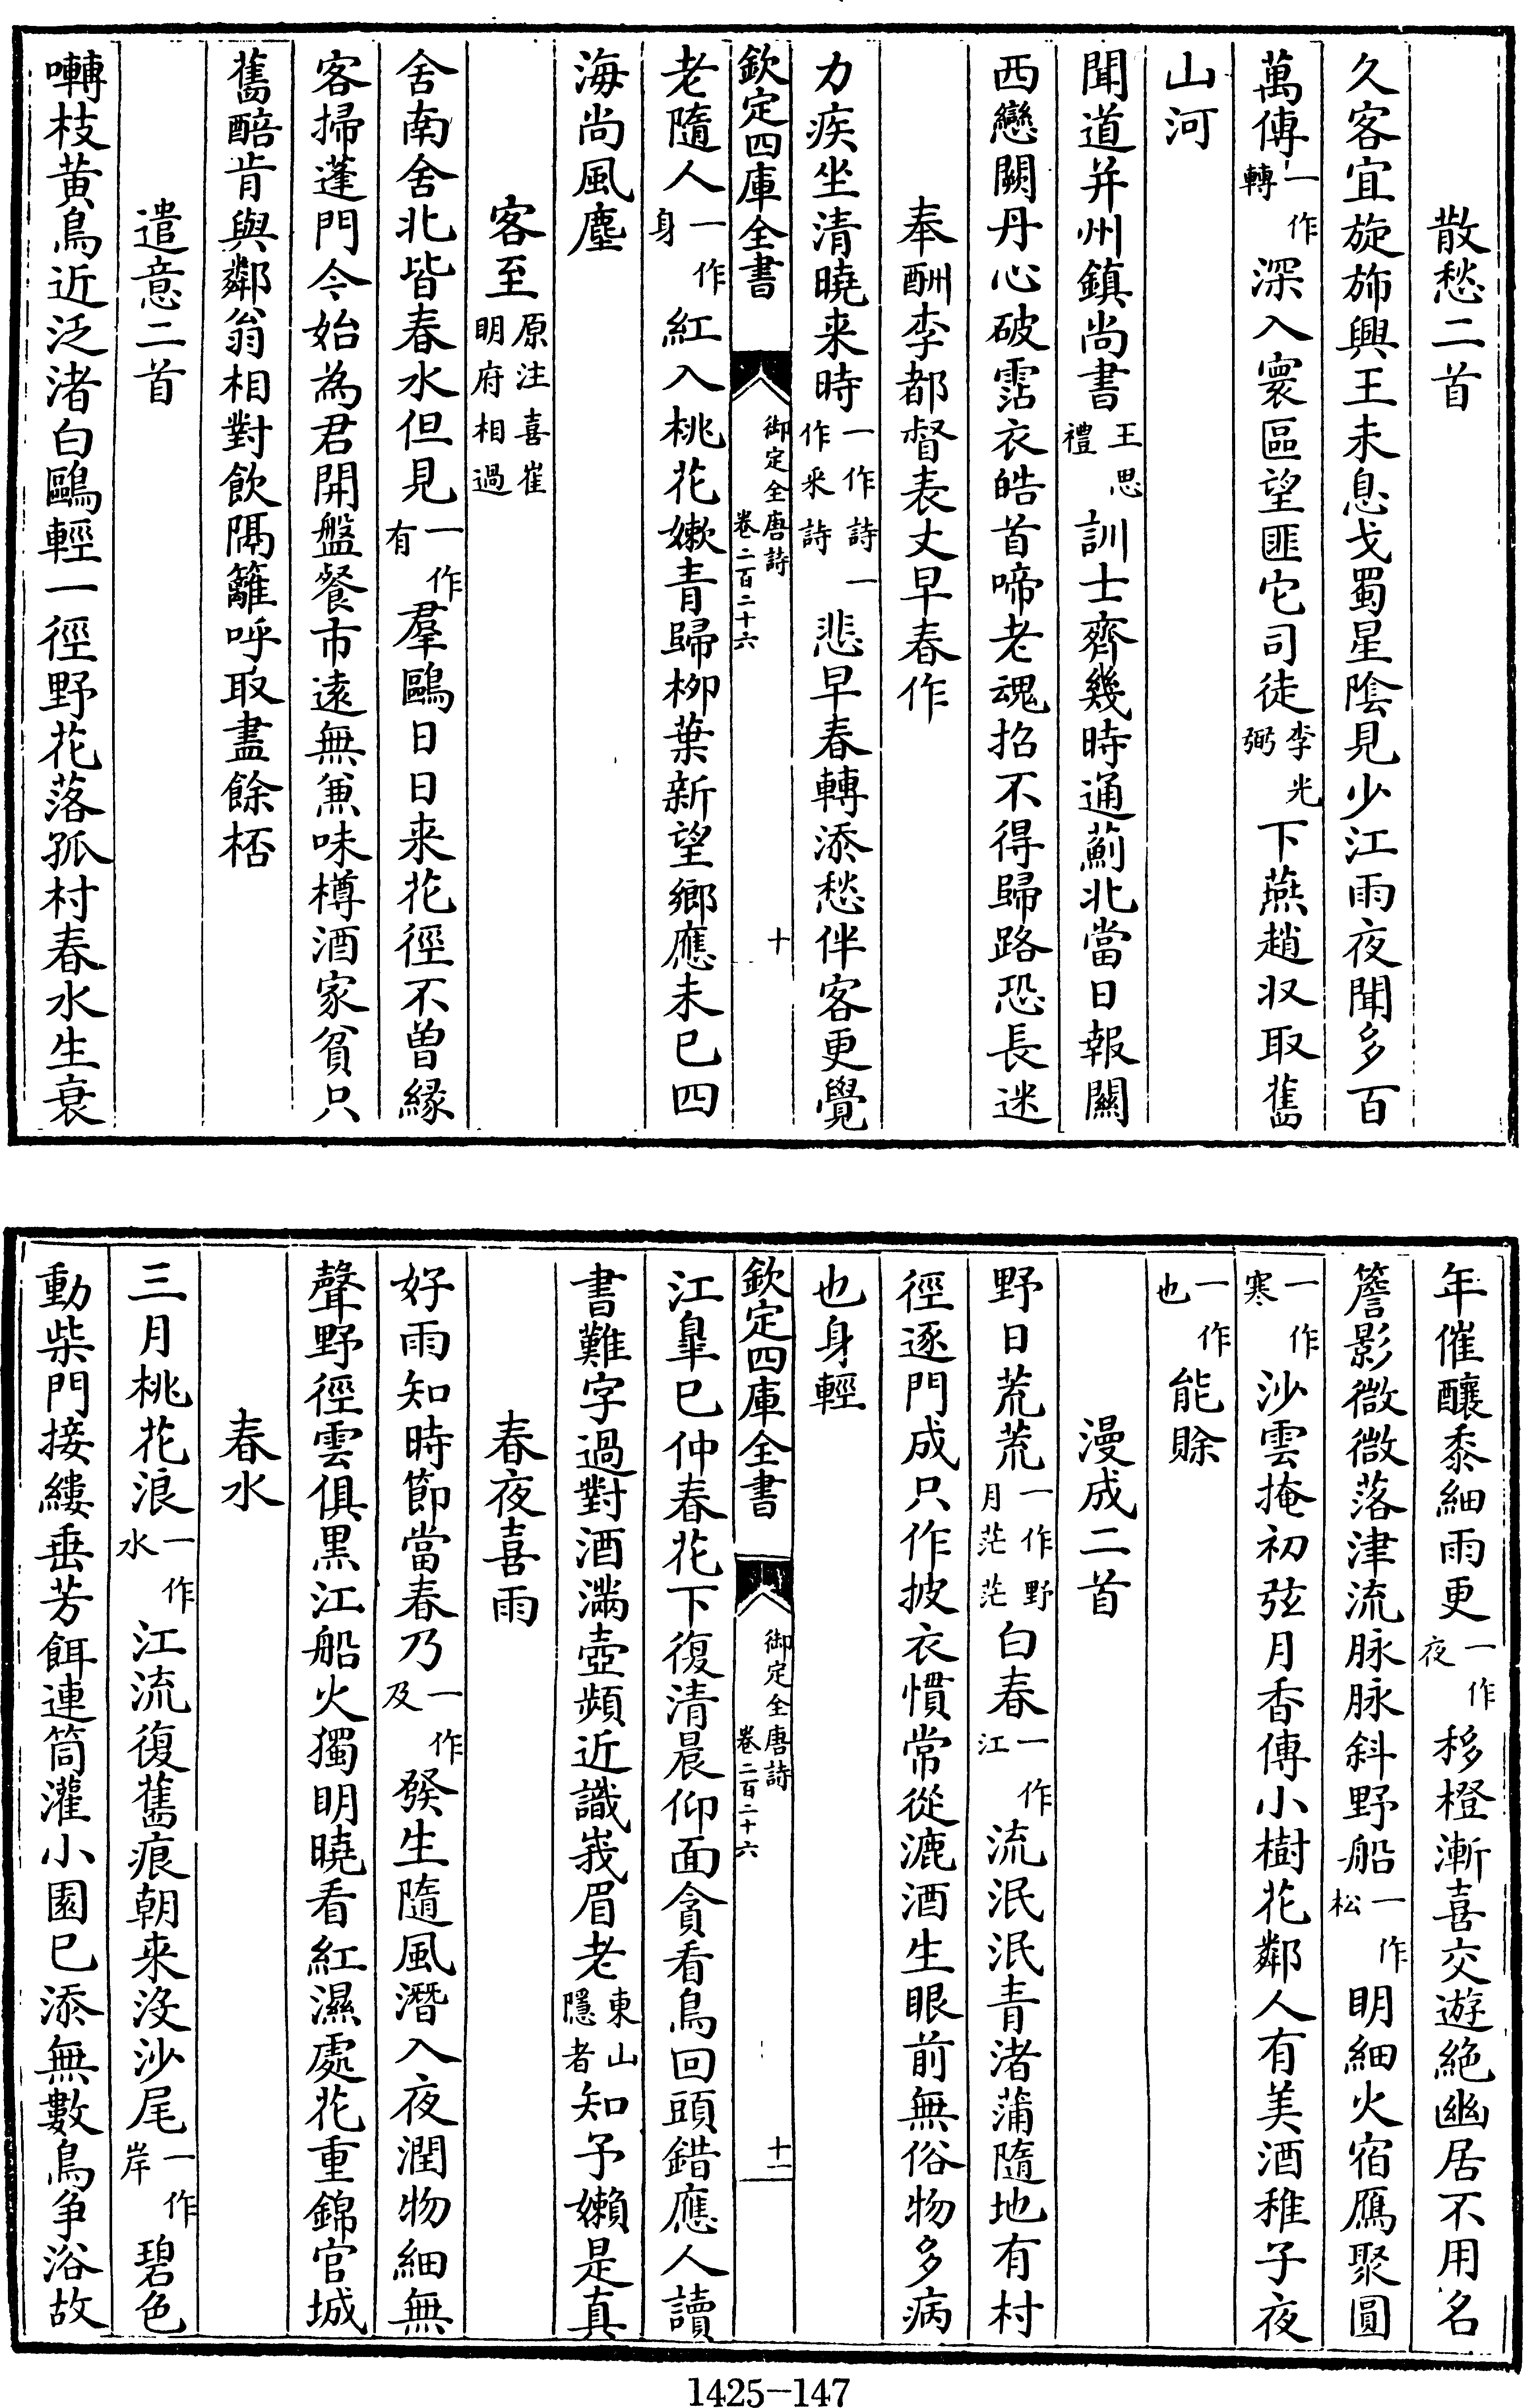 散愁二首
久客宜旋斾興王未息戈蜀星陰見少江雨夜聞多百
萬傳一作轉深入寰區望匪它司徒李光弼下燕趙収取舊
山河
聞道并州鎮尚書王思禮訓士齊幾時通薊北當日報關
西戀闕丹心破霑衣皓首啼老魂招不得歸路恐長迷
奉酬李都督表丈早春作
力疾坐清曉来時一作詩一作采詩悲早春轉添愁伴客更覺
欽定四庫全書 御定全唐詩卷二百二十六 十
老隨人一作身紅入桃花嫰青歸栁葉新望鄉應未已四
海尚風塵
客至原注喜崔明府相過
舍南舍北皆春水但見一作有羣鷗日日来花徑不曾縁
客掃蓬門今始為君開盤餐市遠無兼味樽酒家貧只
舊醅肯與鄰翁相對飲隔籬呼取盡餘桮
遣意二首
囀枝黄鳥近泛渚白鷗輕一徑野花落孤村春水生衰
年催釀黍細雨更一作夜移橙漸喜交遊絶幽居不用名
簷影微微落津流脉脉斜野船一作松明細火宿鴈聚圓
一作寒沙雲掩初弦月香傳小樹花鄰人有美酒稚子夜
一作也能賖
漫成二首
野日荒荒一作野月茫茫白春一作江流泯泯青渚蒲隨地有村
徑逐門成只作披衣慣常從漉酒生眼前無俗物多病
也身輕
欽定四庫全書 御定全唐詩卷二百二十六 十一
江臯已仲春花下復清晨仰面貪看鳥回頭錯應人讀
書難字過對酒滿壺頻近識峩眉老東山隱者知予嬾是真
春夜喜雨
好雨知時節當春乃一作及發生隨風潛入夜潤物細無
聲野徑雲俱黑江船火獨明曉看紅濕處花重錦官城
春水
三月桃花浪一作水江流復舊痕朝来没沙尾一作岸碧色
動柴門接縷垂芳餌連筒灌小園已添無數鳥争浴故
1425-147